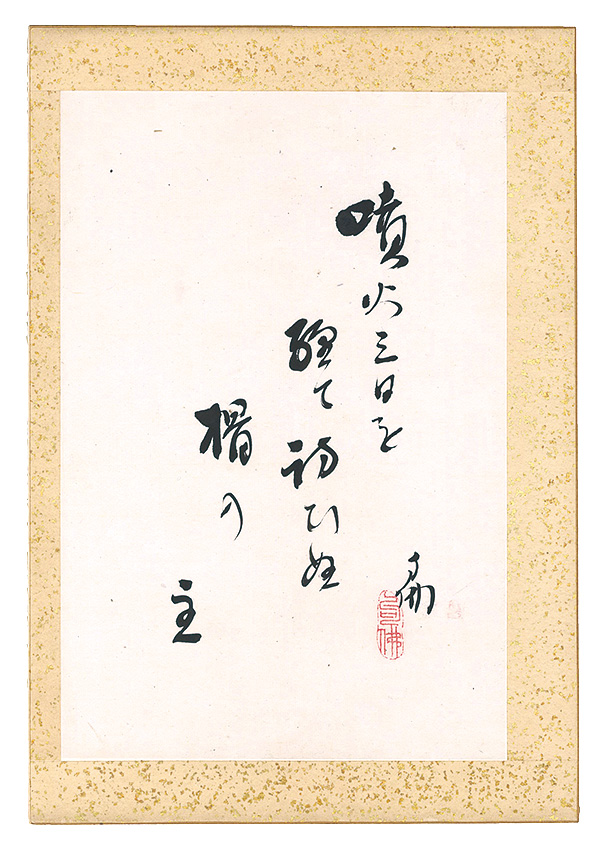 噴火三日を
經て訪ひぬ
榾の
主